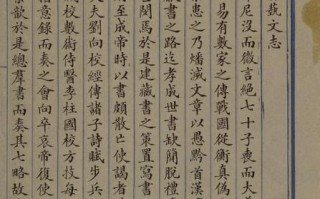 蓺文志
尼沒而微言絕七十子喪而大
易有數家之傳戰國從衡真偽
患之乃燔滅文章以愚黔首漢
獻書之路迄孝成世書缺簡脫禮
閔焉於是建藏書之策置寫書
至成帝時以書頗散亡使謁者
夫劉向校經傳諸子詩賦步兵
校數術侍醫李柱國校方技每
意錄而奏之會向卒哀帝復使
歆於是總羣書而奏其七略故